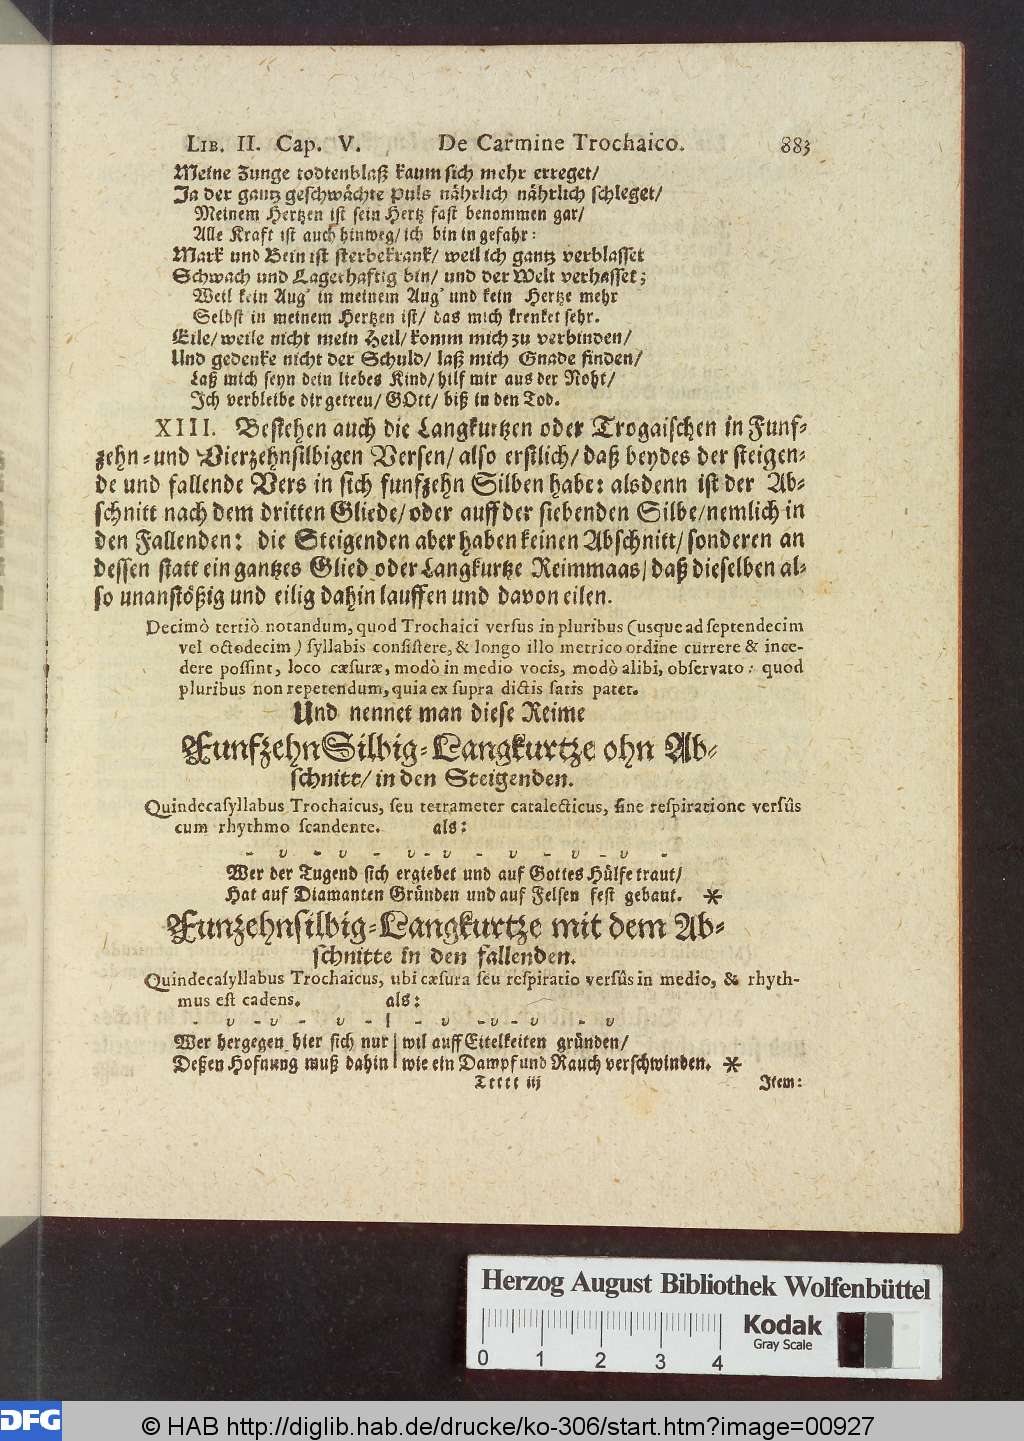 LIB. II. Cap. V. De Carmine Trochaico. 883
Meine Zunge todtenblaß kaum sich mehr erreget/
Ja der gantz geschwächte Puls nährlich nährlich schleget/
Meinem Hertzen ist sein Hertz fast benommen gar/
Alle Kraft ist auch hinweg/ ich bin in gefahr:
Mark und Bein ist sterbekrank/ weil ich gantz verblasset
Schwach und Lagerhaftig bin/ und der Welt verhasset;
Weil kein Aug' in meinem Aug' und kein Hertze mehr
Selbst in meinem Hertzen ist/ das mich krenket sehr.
Eile/ weile nicht mein Heil/ komm mich zu verbinden/
Und gedenke nicht der Schuld/ laß mich Gnade finden/
Laß mich seyn dein liebes Kind/ hilf mir aus der Noht/
Ich verbleibe dir getreu/ GOtt/ biß in den Tod.
XIII. Bestehen auch die Langkurtzen oder Trogaischen in Funf-
zehn-und Vierzehnsilbigen Versen/ also erstlich/ daß beydes der steigen-
de und fallende Vers in sich funfzehn Silben habe: alsdenn ist der Ab-
schnitt nach dem dritten Gliede/ oder auff der siebenden Silbe/ nemlich in
den Fallenden: die Steigenden aber haben keinen Abschnitt/ sonderen an
dessen statt ein gantzes Glied oder Langkurtze Reimmaas/ daß dieselben al-
so unanstößig und eilig dahin lauffen und davon eilen.
Decimò tertiò notandum, quod Trochaici versus in pluribus (usque ad septendecim
vel octodecim) syllabis consistere, & longo illo metrico ordine currere & ince-
dere possint, loco cæsuræ, modò in medio vocis, modò alibi, observato: quod
pluribus non repetendum, quia ex supra dictis satis patet.
Und nennet man diese Reime
Funfzehn Silbig-Langkurtze ohn Ab-
schnitt/ in den Steigenden.
Quindecasyllabus Trochaicus, seu tetrameter catalecticus, sine respiratione versûs
cum rhythmo scandente. als:
- υ - υ - υ - υ - υ - υ - υ -
Wer der Tugend sich ergiebet und auf Gottes Hülfe traut/
Hat auf Diamanten Gründen und auf Felsen fest gebaut. *
Funzehnsilbig-Langkurtze mit dem Ab-
schnitte in den fallenden.
Quindecasyllabus Trochaicus, ubi cæsura seu respiratio versûs in medio, & rhyth-
mus est cadens. als:
- υ - υ - υ - | - υ - υ - υ - υ
Wer hergegen hier sich nur | wil auff Eitelkeiten gründen/
Deßen Hofnung muß dahin | wie ein Dampf und Rauch verschwinden. *
Ttttt iij Item:
Herzog August Bibliothek Wolfenbüttel
Kodak
Gray Scale
0 1 2 3 4
DFG © HAB http://diglib.hab.de/drucke/ko-306/start.htm?image=00927